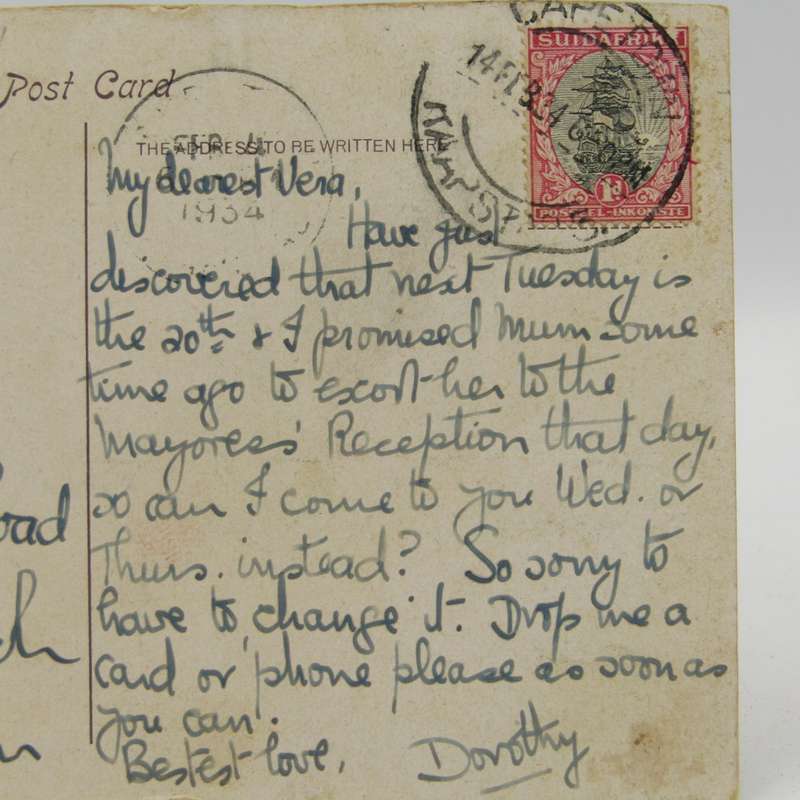 Post Card
THE ADDRESS TO BE WRITTEN HERE
FEB
1934
CAPE TOWN
14 FEB 34
KAAPSTAD
SUIDAFRIKA
1D
POSSEEL-INKOMSTE
My dearest Vera,
Have just
discovered that next Tuesday is
the 20th & I promised Mum some
time ago to escort her to the
Mayoress' Reception that day,
so can I come to you Wed. or
Thurs. instead? So sorry to
have to change it. Drop me a
card or phone please as soon as
you can.
Bestest love,
Dorothy